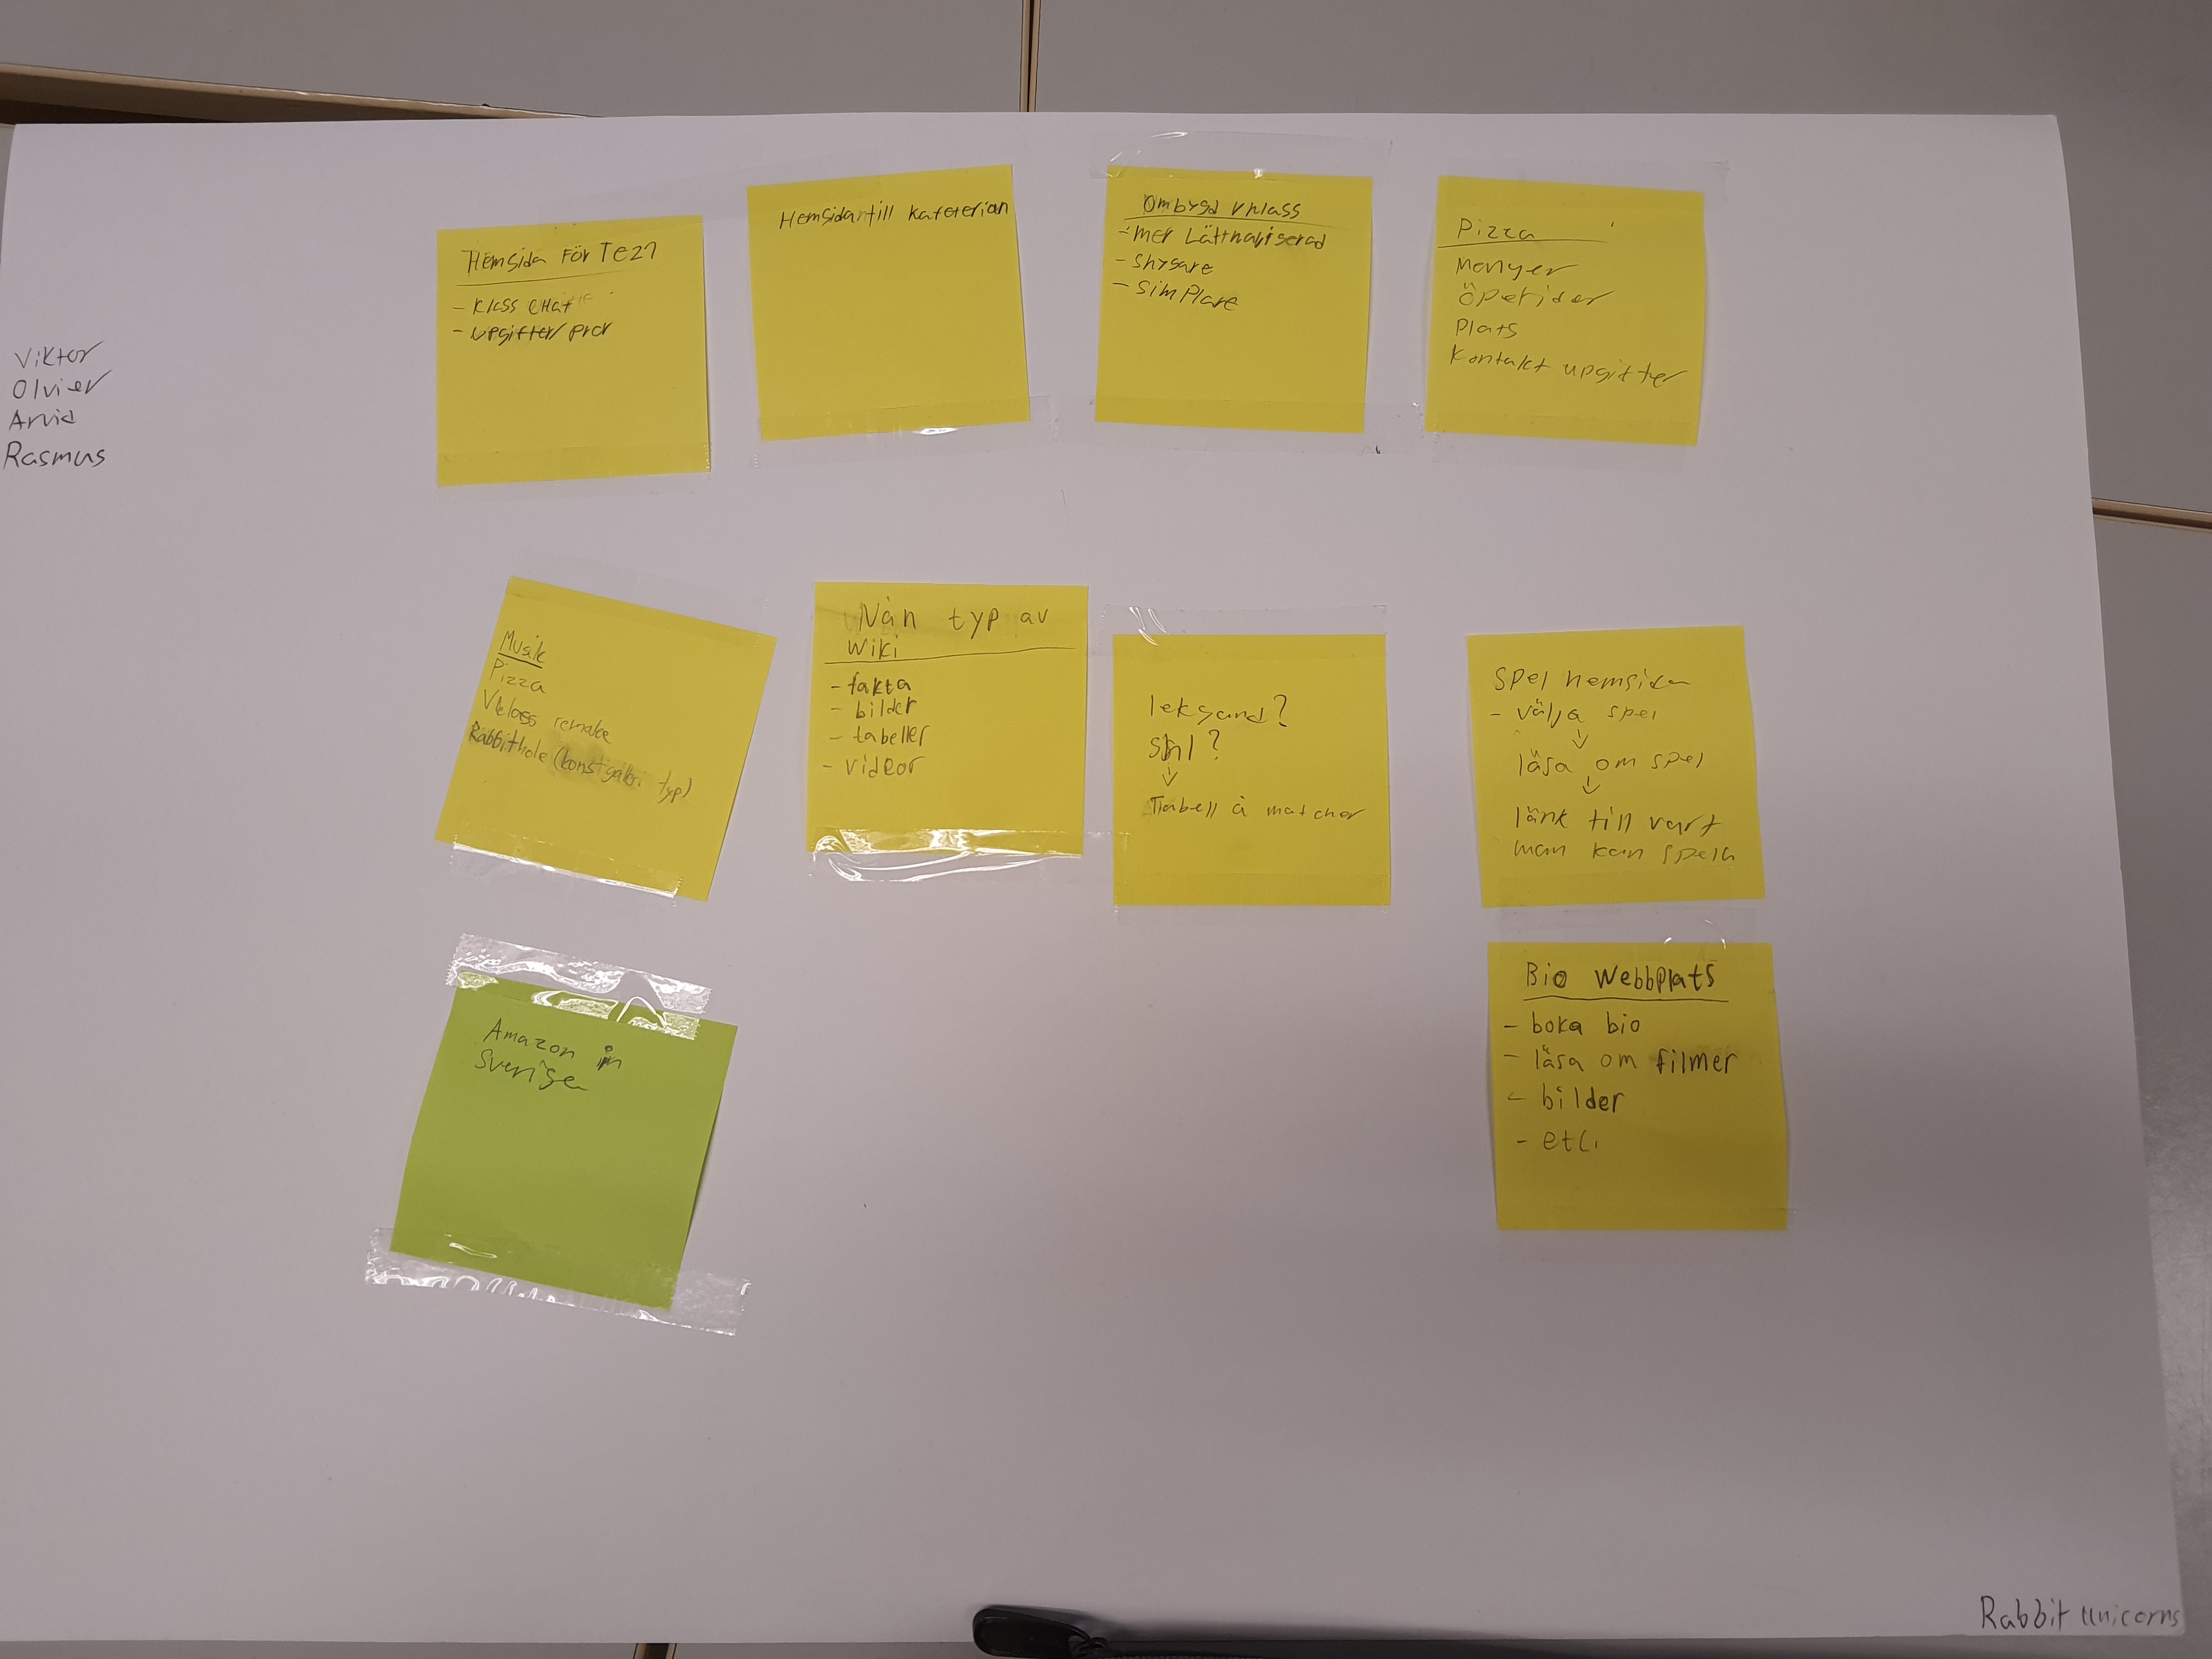 Viktor
Olivier
Arvid
Rasmus
Hemsida För Te21
- Klass chat
- uPgifter/Pror
Hemsida till kafeterian
Ombygd Vklass
- mer Lättnavigerad
- snysare
- simPlare
Pizza
Menyer
Öpetider
Plats
Kontakt upgifter
Musik
Pizza
Veloss remake
Rabbithole (konstgalleri typ)
Nån typ av
wiki
- fakta
- bilder
- tabeller
- videor
leksand?
shl?
Tabell å matcher
Spel hemsida
- välja spel
läsa om spel
länk till vart
man kan spela
Amazon in
Sverige
Bio Webbplats
- boka bio
- läsa om filmer
- bilder
- etc.
Rabbit Unicorns